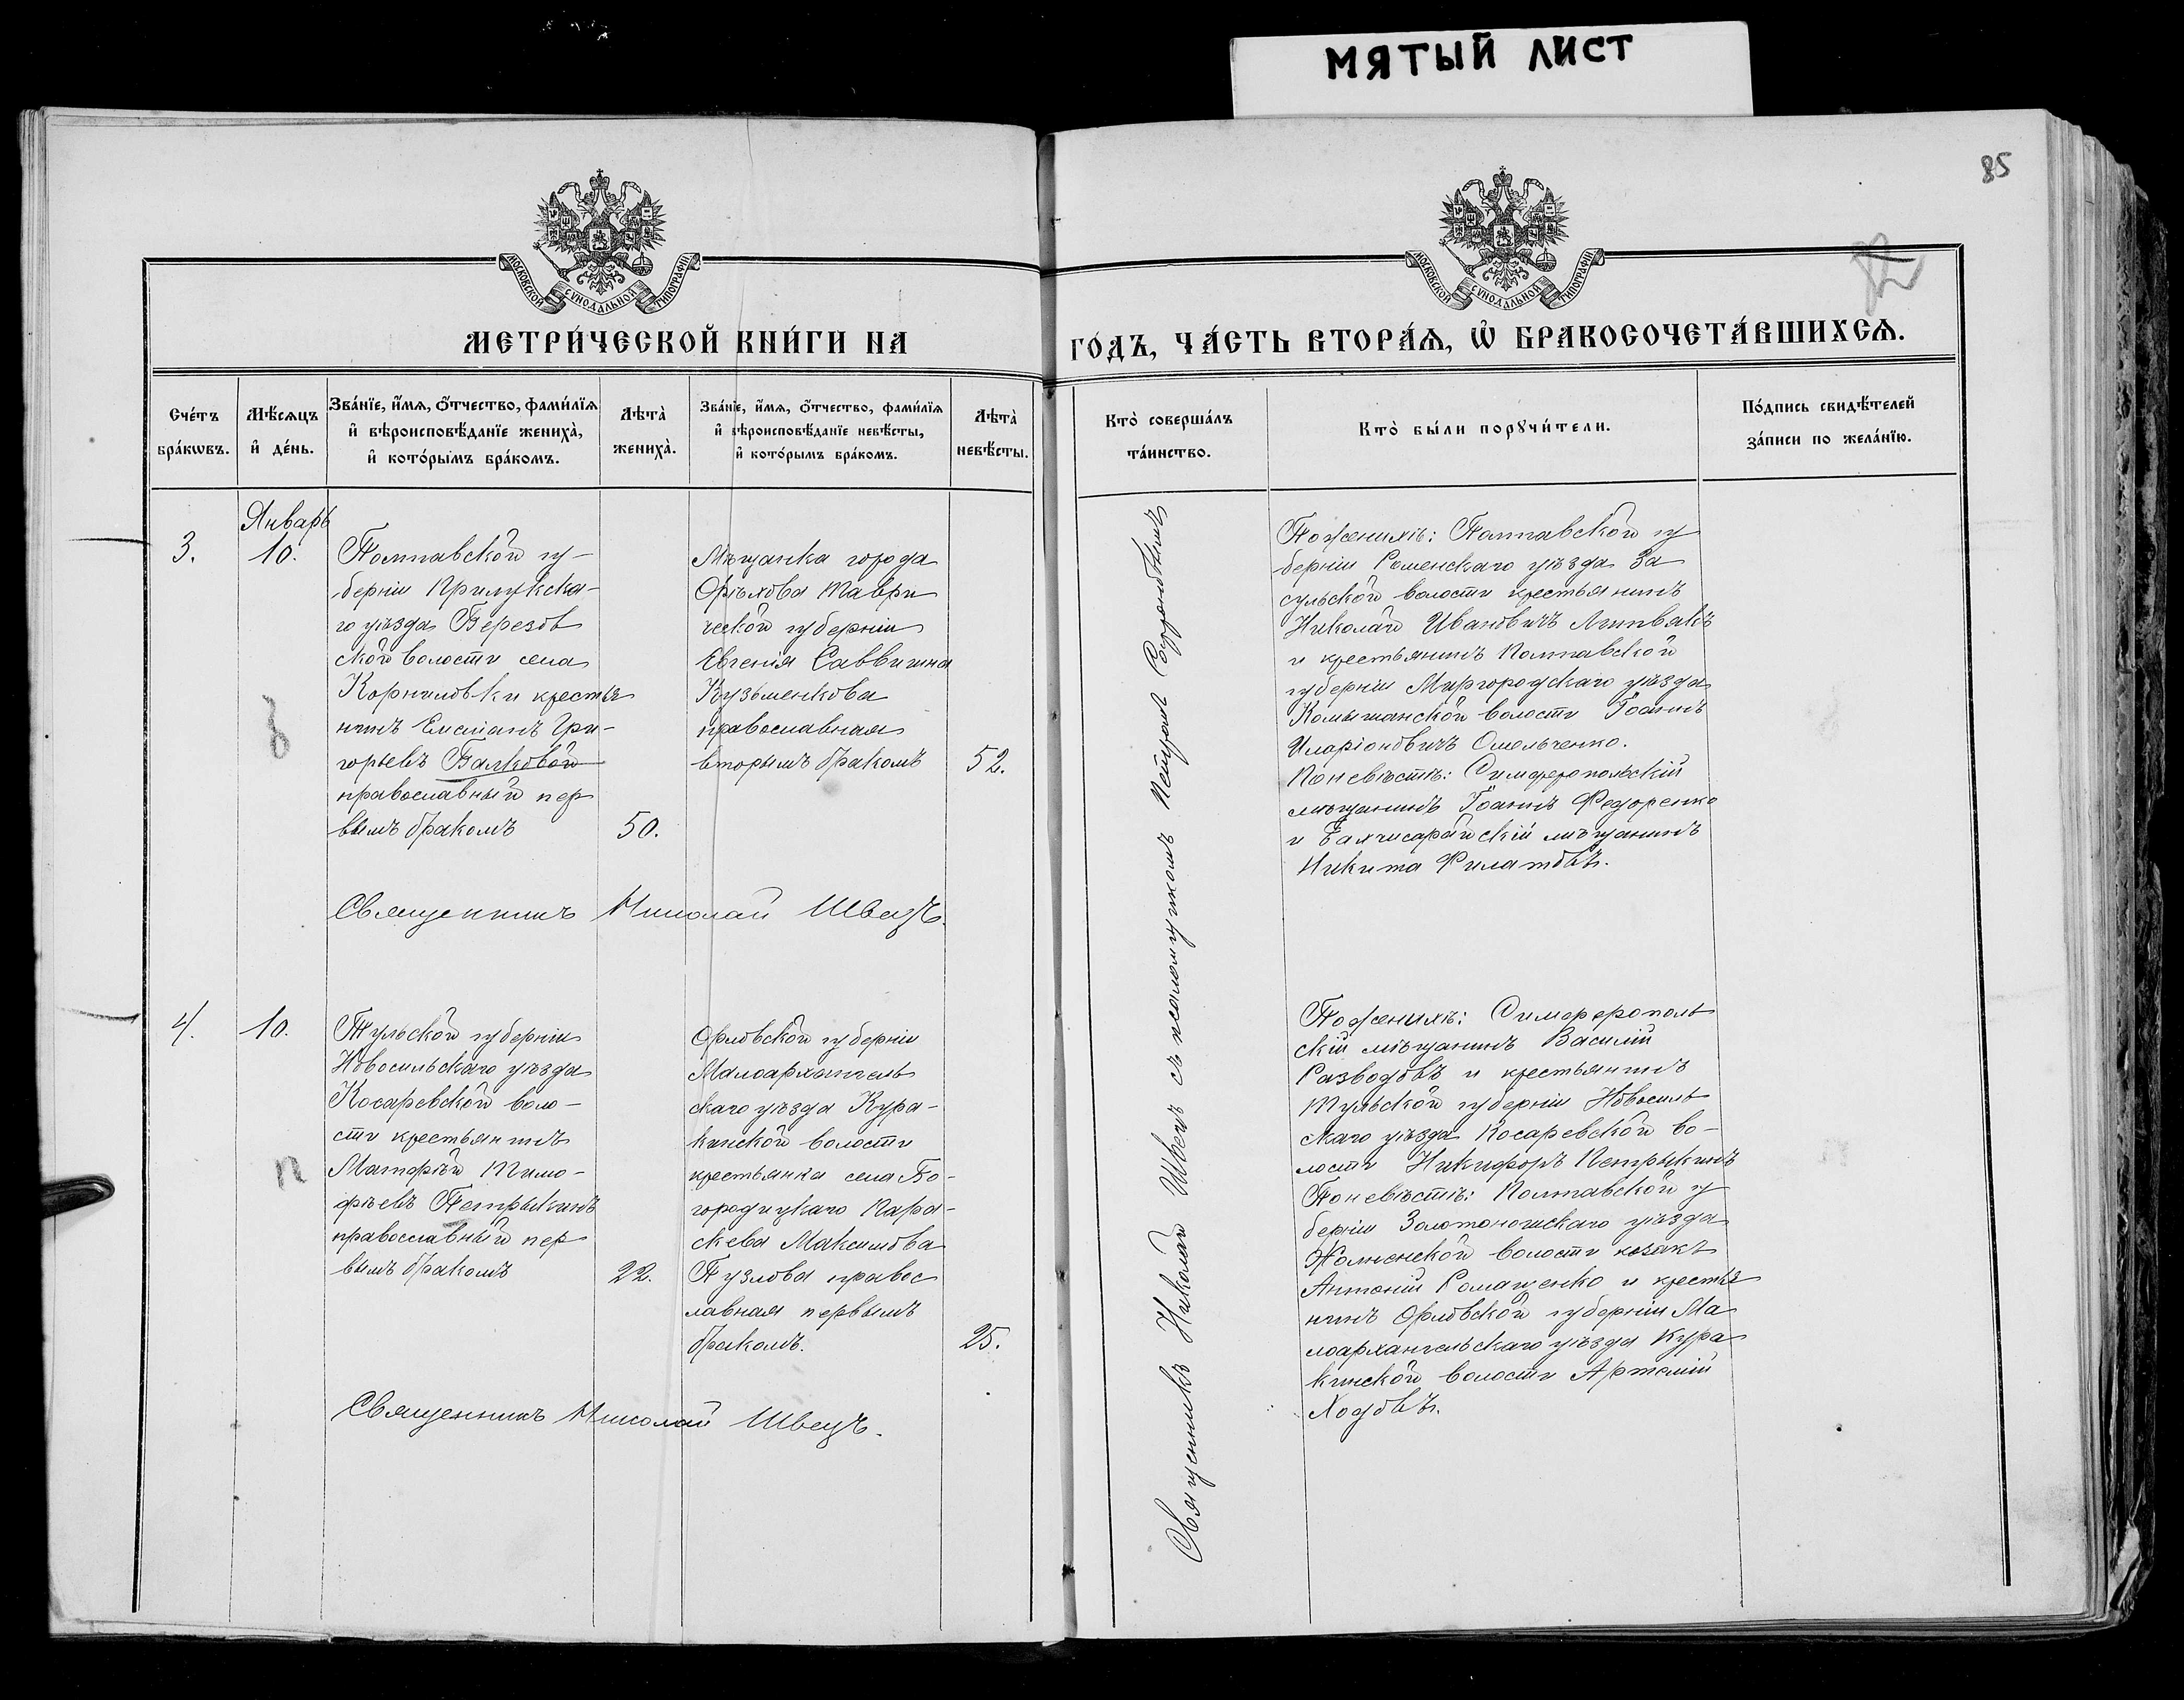 МЯТЫЙ ЛИСТ
85
МОСКОВСКОЙ СУНОДАЛЬНОЙ ТИПОГРАФІИ
МОСКОВСКОЙ СУНОДАЛЬНОЙ ТИПОГРАФІИ
МЕТРИ́ЧЕСКОЙ КНИ́ГИ НА
ГО́ДЪ, ЧА́СТЬ ВТОРА́Ѧ, Ѽ БРАКОСОЧЕТА́ВШИХСѦ.
Сче́тъ
бра́кѡвъ.
Мѣ́сѧцъ
и҆ де́нь.
Зва́нїе, и҆́мѧ, ѻ҆́тчество, фами́лїѧ
и҆ вѣроисповѣ́данїе жениха̀,
и҆ кото́рымъ бра́комъ.
Лѣта̀
жениха̀.
Зва́нїе, и҆́мѧ, ѻ҆́тчество, фами́лїѧ
и҆ вѣроисповѣ́данїе невѣ́сты,
и҆ кото́рымъ бра́комъ.
Лѣта̀
невѣ́сты.
Кто̀ соверша́лъ
та́инство.
Кто̀ бы́ли порꙋчи́тели.
По́дпись свидѣ́телей
за́писи по жела́нїю.
Январь
3.
10.
Полтавской гу-
берніи Прилукска-
го уѣзда Березов
ской волости села
Корниловки крестья
нинъ Емеліанъ Гри-
горьевъ Балковой
православный пер
вымъ бракомъ
50.
Мѣщанка города
Орѣхова Таври
ческой губерніи
Евгенія Саввишна
Кузьменкова
православная
вторымъ бракомъ
52.
Священникъ Николай Швецъ.
По женихѣ: Полтавской гу
берніи Роменскаго уѣзда За
сульской волости крестьянинъ
Николай Ивановичъ Литвакъ
и крестьянинъ Полтавской
губерніи Миргородскаго уѣзда
Комышанской волости Іоаннъ
Иларіоновичъ Омельченко.
По невѣстѣ: Симферопольскій
мѣщанинъ Іоаннъ Федоренко
и Бахчисарайскій мѣщанинъ
Никита Филатовъ.
4.
10.
Тульской губерніи
Новосильскаго уѣзда
Косаревской воло-
сти крестьянинъ
Матфій Тимо-
фѣевъ Петрыкинъ
православный пер
вымъ бракомъ
22.
Орловской губерніи
Малоархангель
скаго уѣзда Кура-
кинской волости
крестьянка села Бо-
городицкаго Пара-
скева Максимова
Пузлова правос
лавная первымъ
бракомъ.
25.
Священникъ Николай Швецъ.
По женихѣ: Симферополь
скій мѣщанинъ Василій
Разводовъ и крестьянинъ
Тульской губерніи Новосиль
скаго уѣзда Косаревской во-
лости Никифоръ Петрыкинъ
По невѣстѣ: Полтавской гу
берніи Золотоношскаго уѣзда
волости козакъ
Антоній Ромащенко и крестья
нинъ Орловской губерніи Ма
лоархангельскаго уѣзда Кура
кинской волости Артемій
Ходовъ.
Священникъ Николай Швецъ съ псаломщикомъ